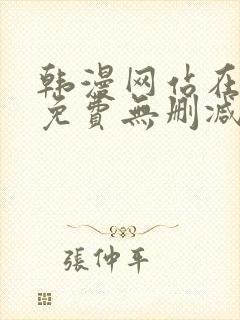 韩漫网站在
免費無删减
張仲平